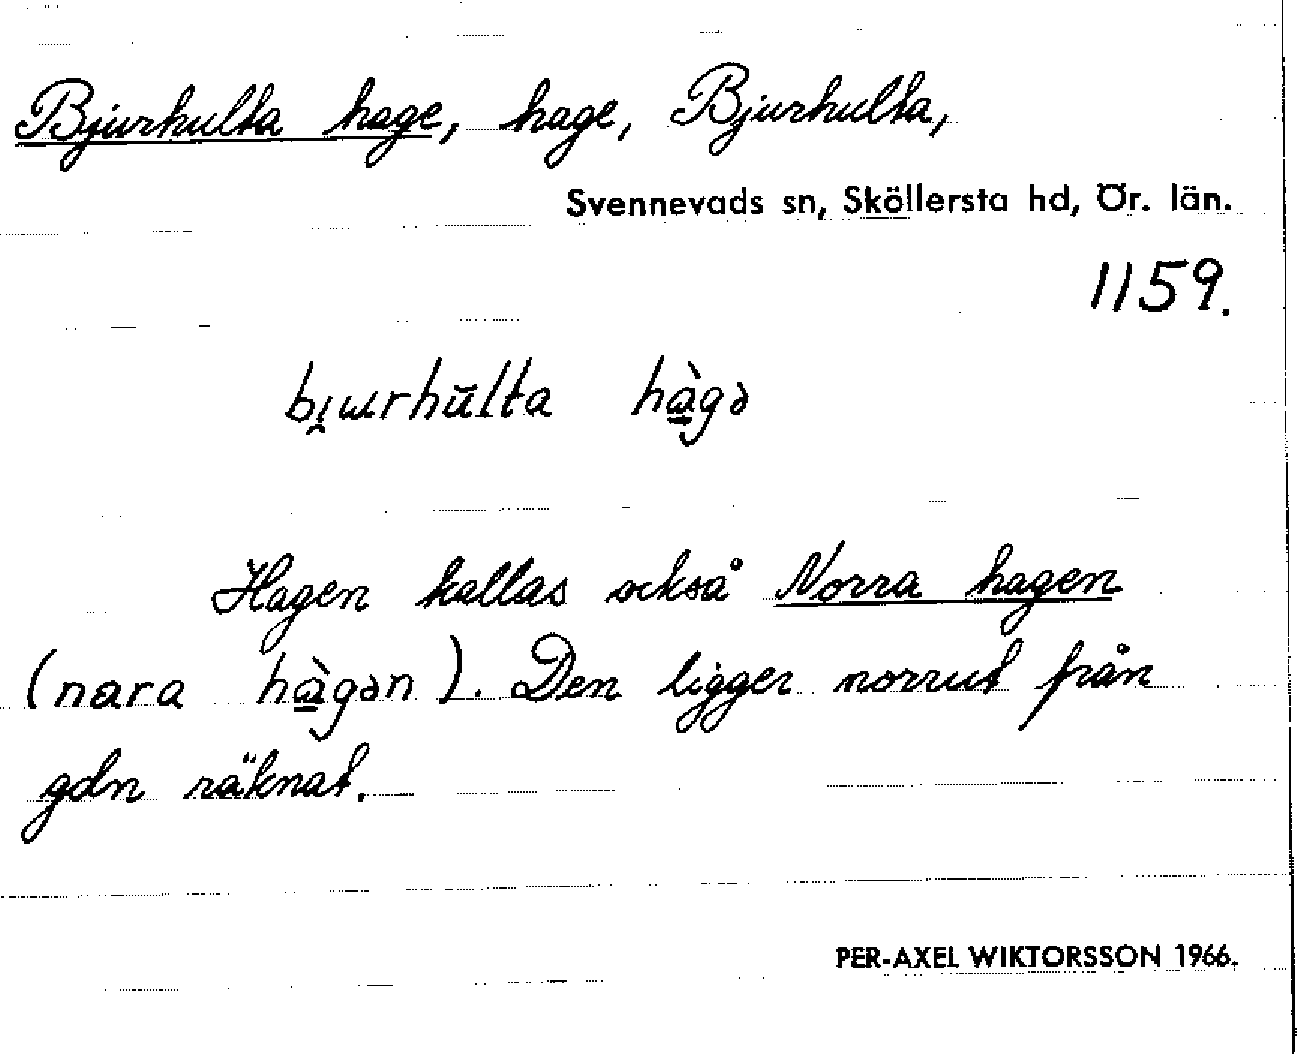 Bjurhulta hage, hage, Bjurhulta,
Svennevads sn, Sköllersta hd, Ör. län.
1159.
bi̯urhūlta hàgə
Hagen kallas också Norra hagen
(nara hàgən). Den ligger norrut från
gdn räknat.
PER-AXEL WIKTORSSON 1966.